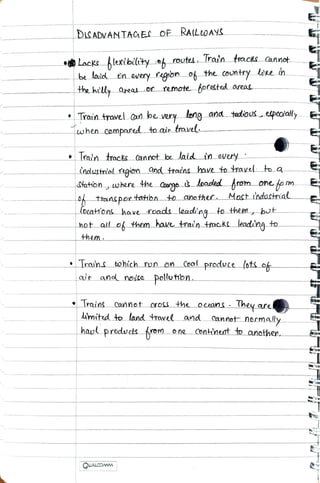 DISADVANTAGES OF RAILWAYS
• Lacks flexibility of routes. Train tracks cannot
be laid in every region of the country like in
the hilly areas or remote forested areas.
• Train travel can be very long and tadious, especially
when compared to air travel.
• Train tracks cannot be laid in every
industrial region and trains have to travel to a
station, where the cargo is loaded from one form
of transportation to another. Most industrial
locations have roads leading to them, but
not all of them have train tracks leading to
them.
• Trains which run on coal produce lots of
air and noise pollution.
• Trains cannot cross the oceans. They are
limited to land travel and cannot normally
haul products from one continent to another.
QUALCOMM